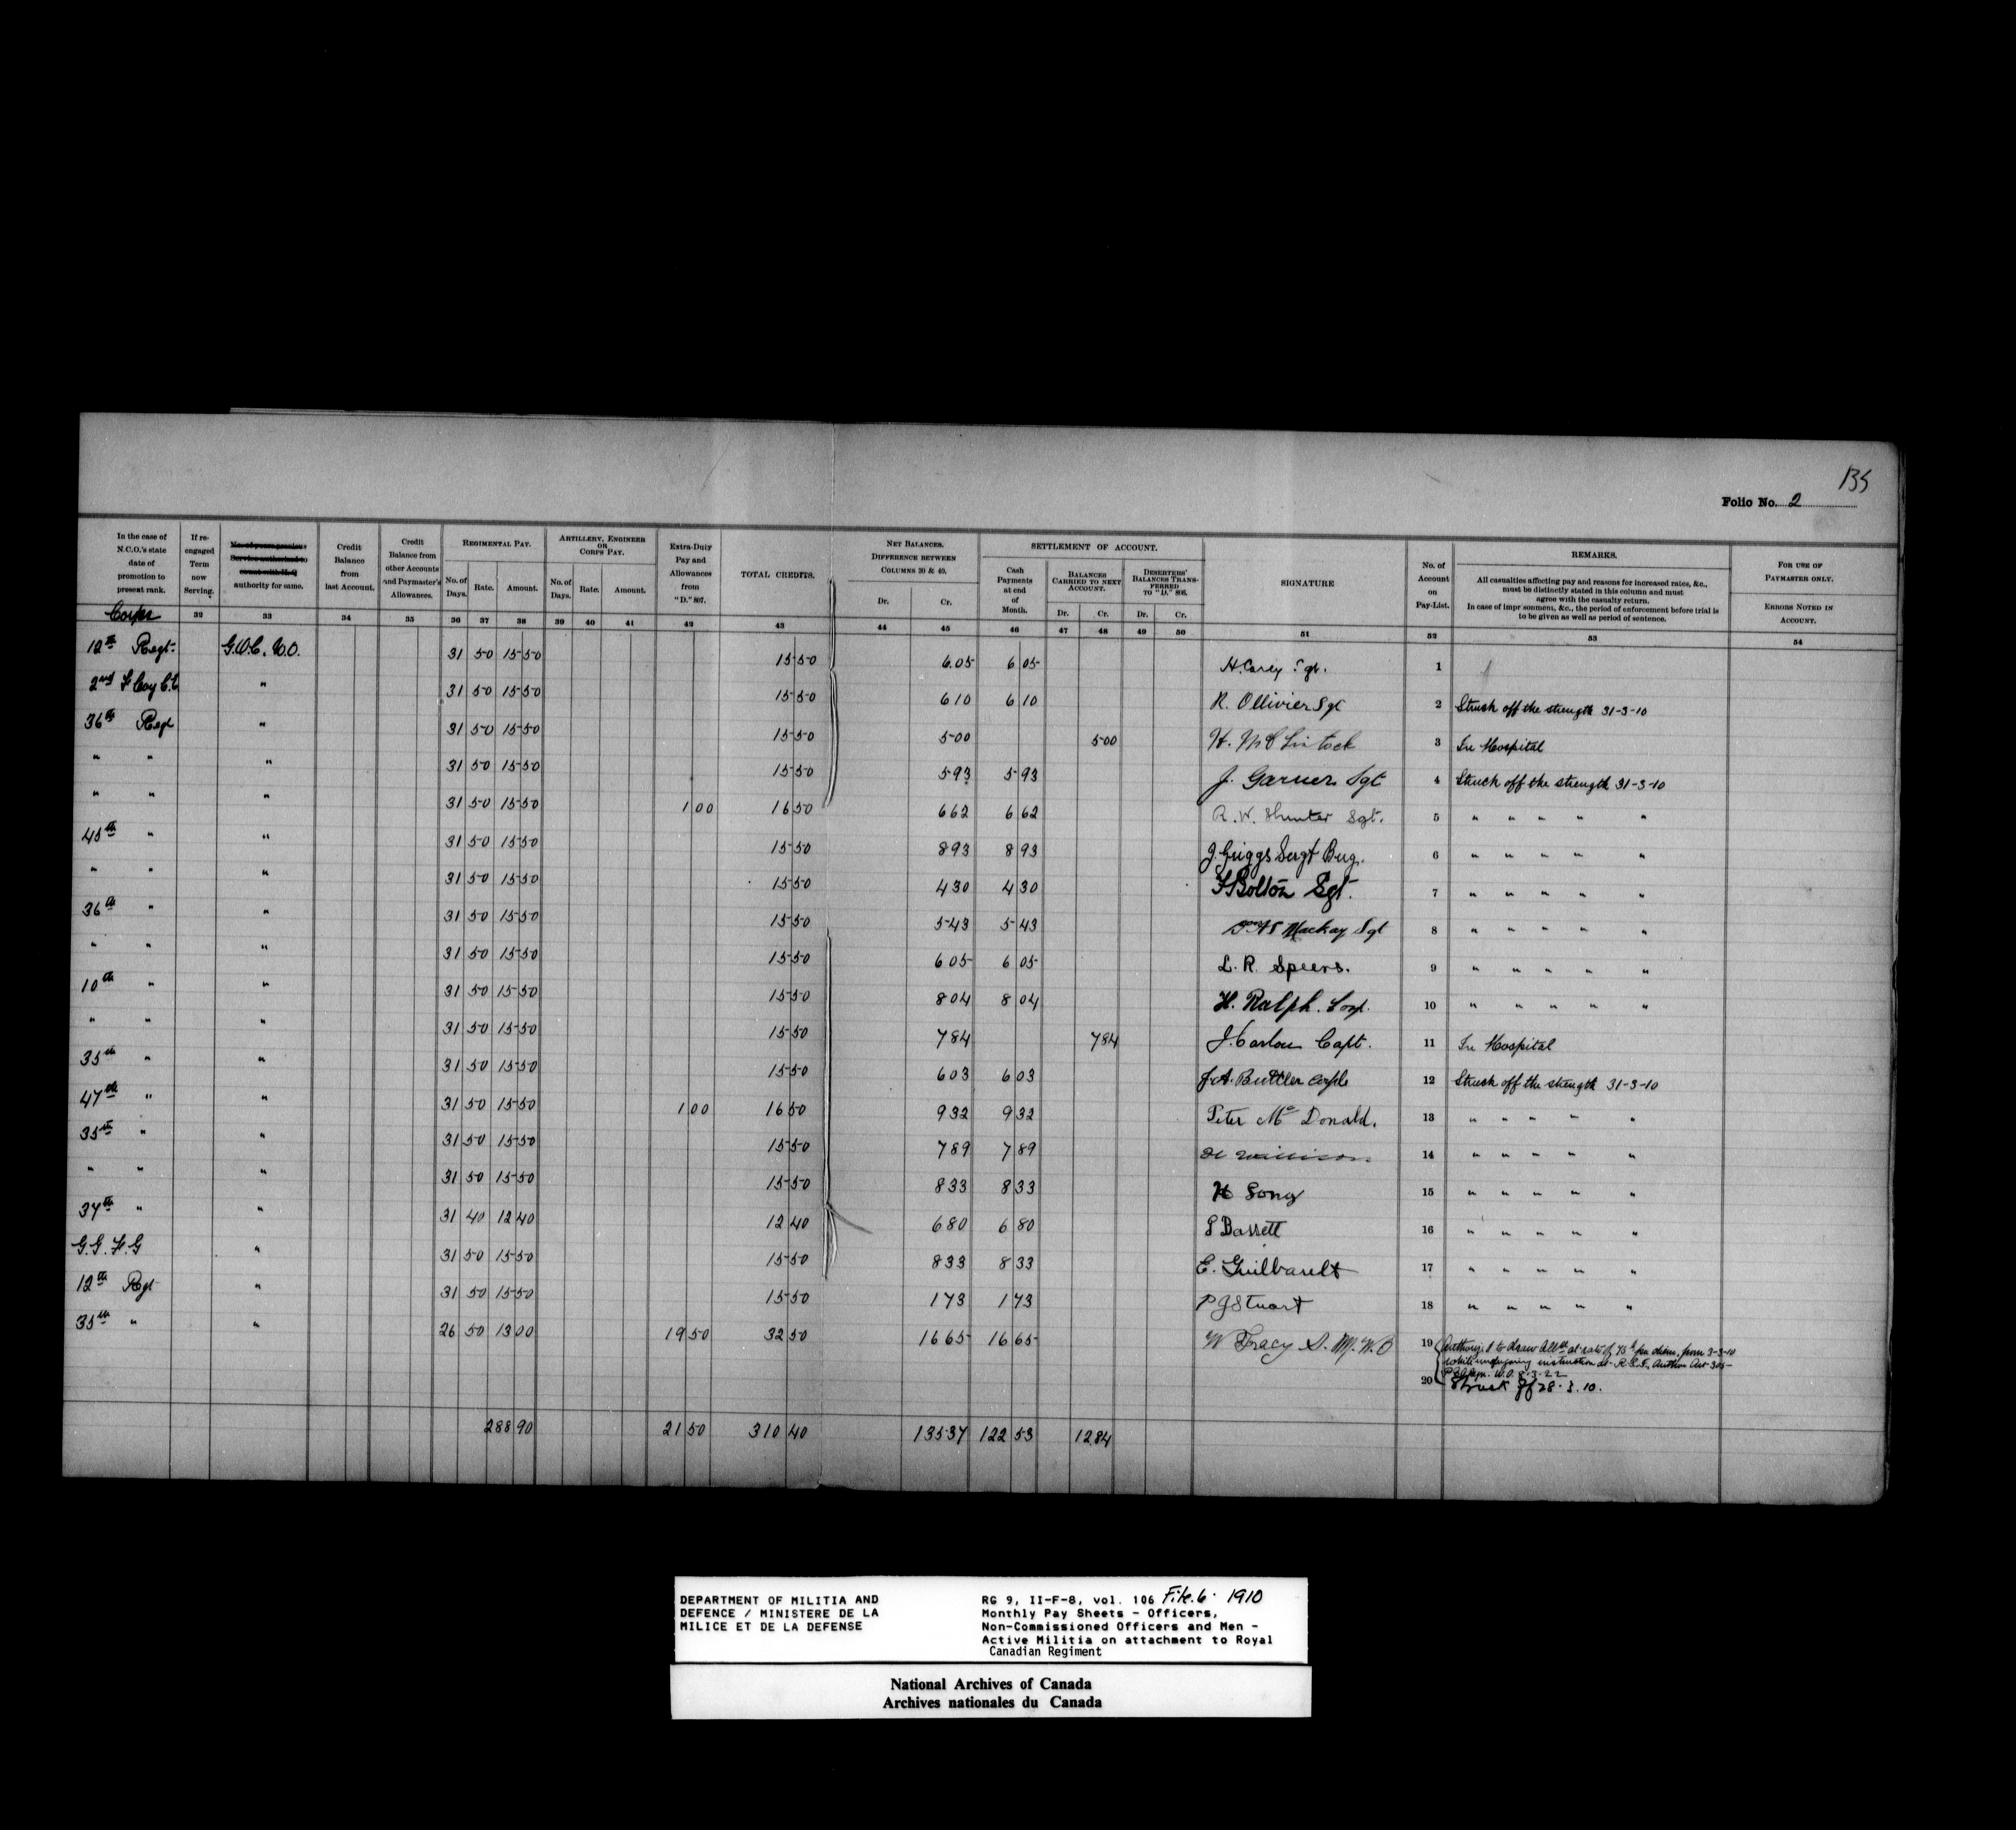 135
Folio No. 2
In the case of N.C.O.'s state date of promotion to present rank.
Corps
If re-engaged Term now Serving.
No. of years previous Service authorized to count with H.Q.
authority for same.
Credit Balance from last Account.
Credit Balance from other Accounts and Paymaster's Allowances.
REGIMENTAL PAY.
No. of Days. Rate. Amount.
ARTILLERY, ENGINEER OR CORPS PAY.
No. of Days. Rate. Amount.
Extra-Duty Pay and Allowances from "D." 807.
TOTAL CREDITS.
NET BALANCES. DIFFERENCE BETWEEN COLUMNS 30 & 40.
Dr. Cr.
SETTLEMENT OF ACCOUNT.
Cash Payments at end of Month.
BALANCES CARRIED TO NEXT ACCOUNT.
Dr. Cr.
DESERTERS' BALANCES TRANSFERRED TO "D." 808.
Dr. Cr.
SIGNATURE
No. of Account on Pay-List.
REMARKS.
All casualties affecting pay and reasons for increased rates, &c., must be distinctly stated in this column and must agree with the casualty return.
In case of imprisonment, &c., the period of enforcement before trial is to be given as well as period of sentence.
FOR USE OF PAYMASTER ONLY.
ERRORS NOTED IN ACCOUNT.
32 33 34 35 36 37 38 39 40 41 42 43 44 45 46 47 48 49 50 51 52 53 54
12th Regt. G.O.C. W.O. 31 50 15 50 15 50 6 05 6 05 H. Carey Sgt. 1
2nd F Coy C.E. " 31 50 15 50 15 50 6 10 6 10 R. Ollivier Sgt 2 Struck off the strength 31-3-10
36th Regt " 31 50 15 50 15 50 5 00 5 00 H. McLintock 3 In Hospital
" " " 31 50 15 50 15 50 5 93 5 93 J. Garner Sgt 4 Struck off the strength 31-3-10
" " " 31 50 15 50 1 00 16 50 6 62 6 62 A. W. Hunter Sgt. 5 " " " " "
45th " " 31 50 15 50 15 50 8 93 8 93 J. Griggs Sergt Bug. 6 " " " " "
" " " 31 50 15 50 15 50 4 30 4 30 F Bolton Sgt. 7 " " " " "
36th " " 31 50 15 50 15 50 5 43 5 43 Mackay Sgt 8 " " " " "
" " " 31 50 15 50 15 50 6 05 6 05 L. R. Speers. 9 " " " " "
10th " " 31 50 15 50 15 50 8 04 8 04 H. Ralph. Corp. 10 " " " " "
" " " 31 50 15 50 15 50 7 84 7 84 J. Carlou Capt. 11 In Hospital
35th " " 31 50 15 50 15 50 6 03 6 03 J. A. Buttler Corpl 12 Struck off the strength 31-3-10
47th " " 31 50 15 50 1 00 16 50 9 32 9 32 Peter McDonald. 13 " " " " "
35th " " 31 50 15 50 15 50 7 89 7 89 14 " " " " "
" " " 31 50 15 50 15 50 8 33 8 33 H Song 15 " " " " "
34th " " 31 40 12 40 12 40 6 80 6 80 S Bassett 16 " " " " "
G.G.F.G " 31 50 15 50 15 50 8 33 8 33 E. Guilbault 17 " " " " "
12th Regt " 31 50 15 50 15 50 1 73 1 73 P J Stuart 18 " " " " "
35th " " 26 50 13 00 19 50 32 50 16 65 16 65 W Tracy S. M. W. O 19 to draw at rate of 75 per diem, from 3-3-10
while undergoing instruction at R.S.I. Author Art 305
W.O. 8-3-22
20 Struck off 28.3.10.
288 90 21 50 310 40 135 37 122 53 12 84
DEPARTMENT OF MILITIA AND DEFENCE / MINISTERE DE LA MILICE ET DE LA DEFENSE
RG 9, II-F-8, vol. 106 File.6. 1910
Monthly Pay Sheets - Officers,
Non-Commissioned Officers and Men -
Active Militia on attachment to Royal
Canadian Regiment
National Archives of Canada
Archives nationales du Canada